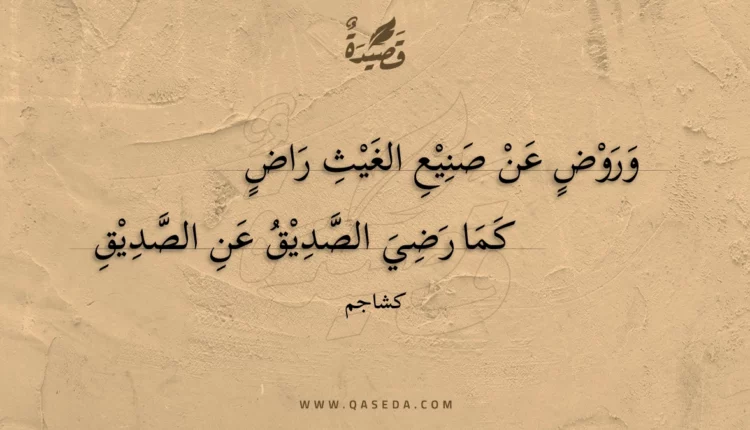 قَصِيْدَةٌ
وَرَوْضٍ عَنْ صَنِيْعِ الغَيْثِ رَاضٍ
كَمَا رَضِيَ الصَّدِيْقُ عَنِ الصَّدِيْقِ
كشاجم
WWW.QASEDA.COM